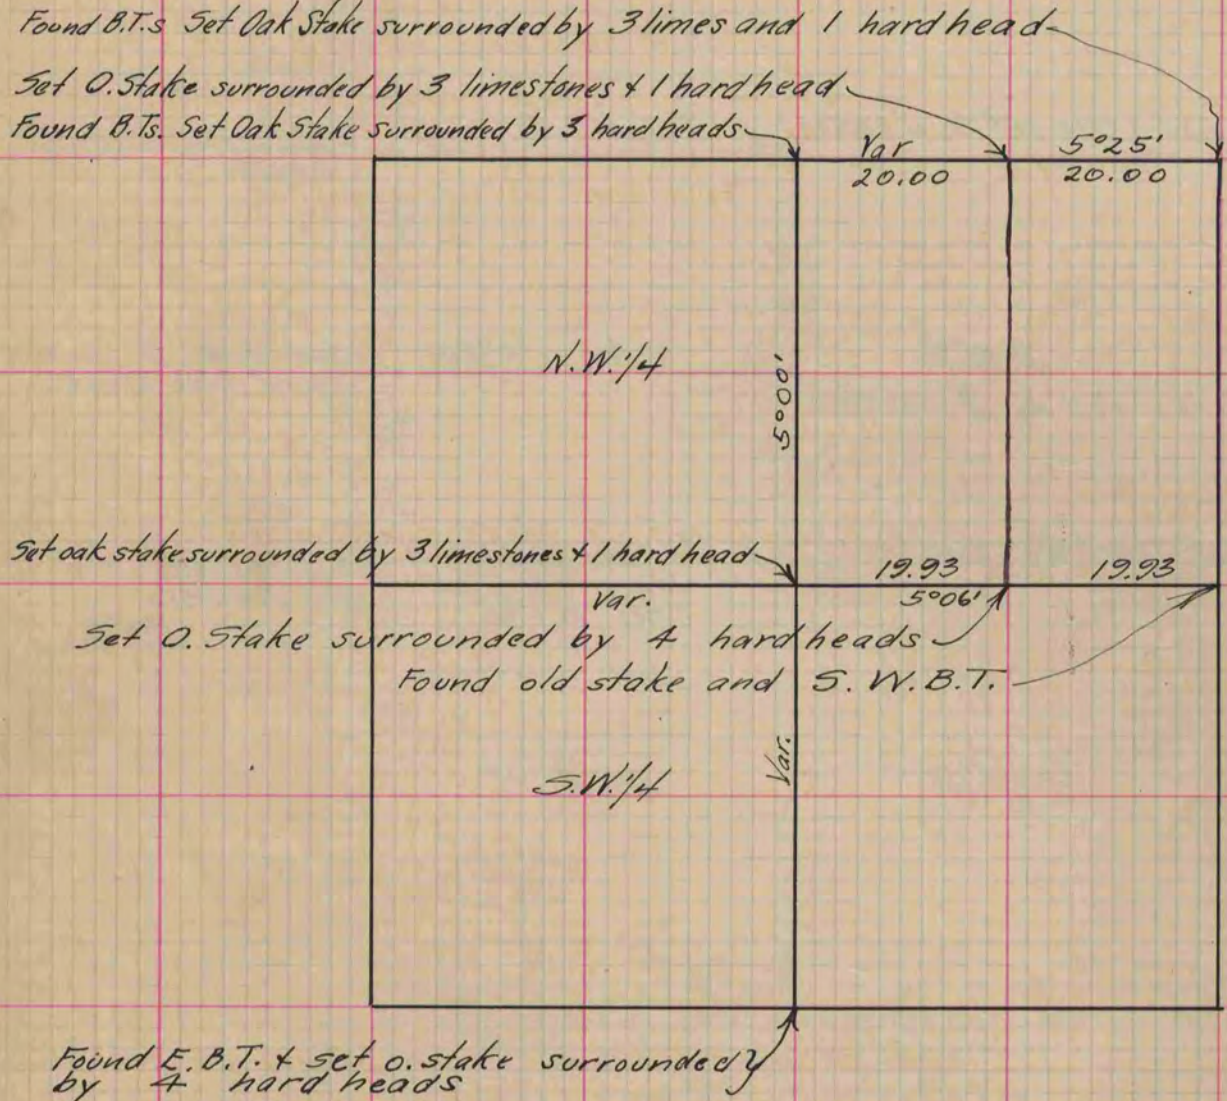 Found B.T.s Set Oak Stake surrounded by 3 limes and 1 hard head
Set O. Stake surrounded by 3 limestones & 1 hard head
Found B.Ts. Set Oak Stake surrounded by 3 hard heads
Var 5°25'
20.00 20.00
N.W. 1/4
5°00'
Set oak stake surrounded by 3 limestones & 1 hard head
19.93 19.93
Var. 5°06'
Set O. Stake surrounded by 4 hard heads
Found old stake and S. W. B.T.
Var.
S.W. 1/4
Found E. B.T. & set o. stake surrounded
by 4 hard heads